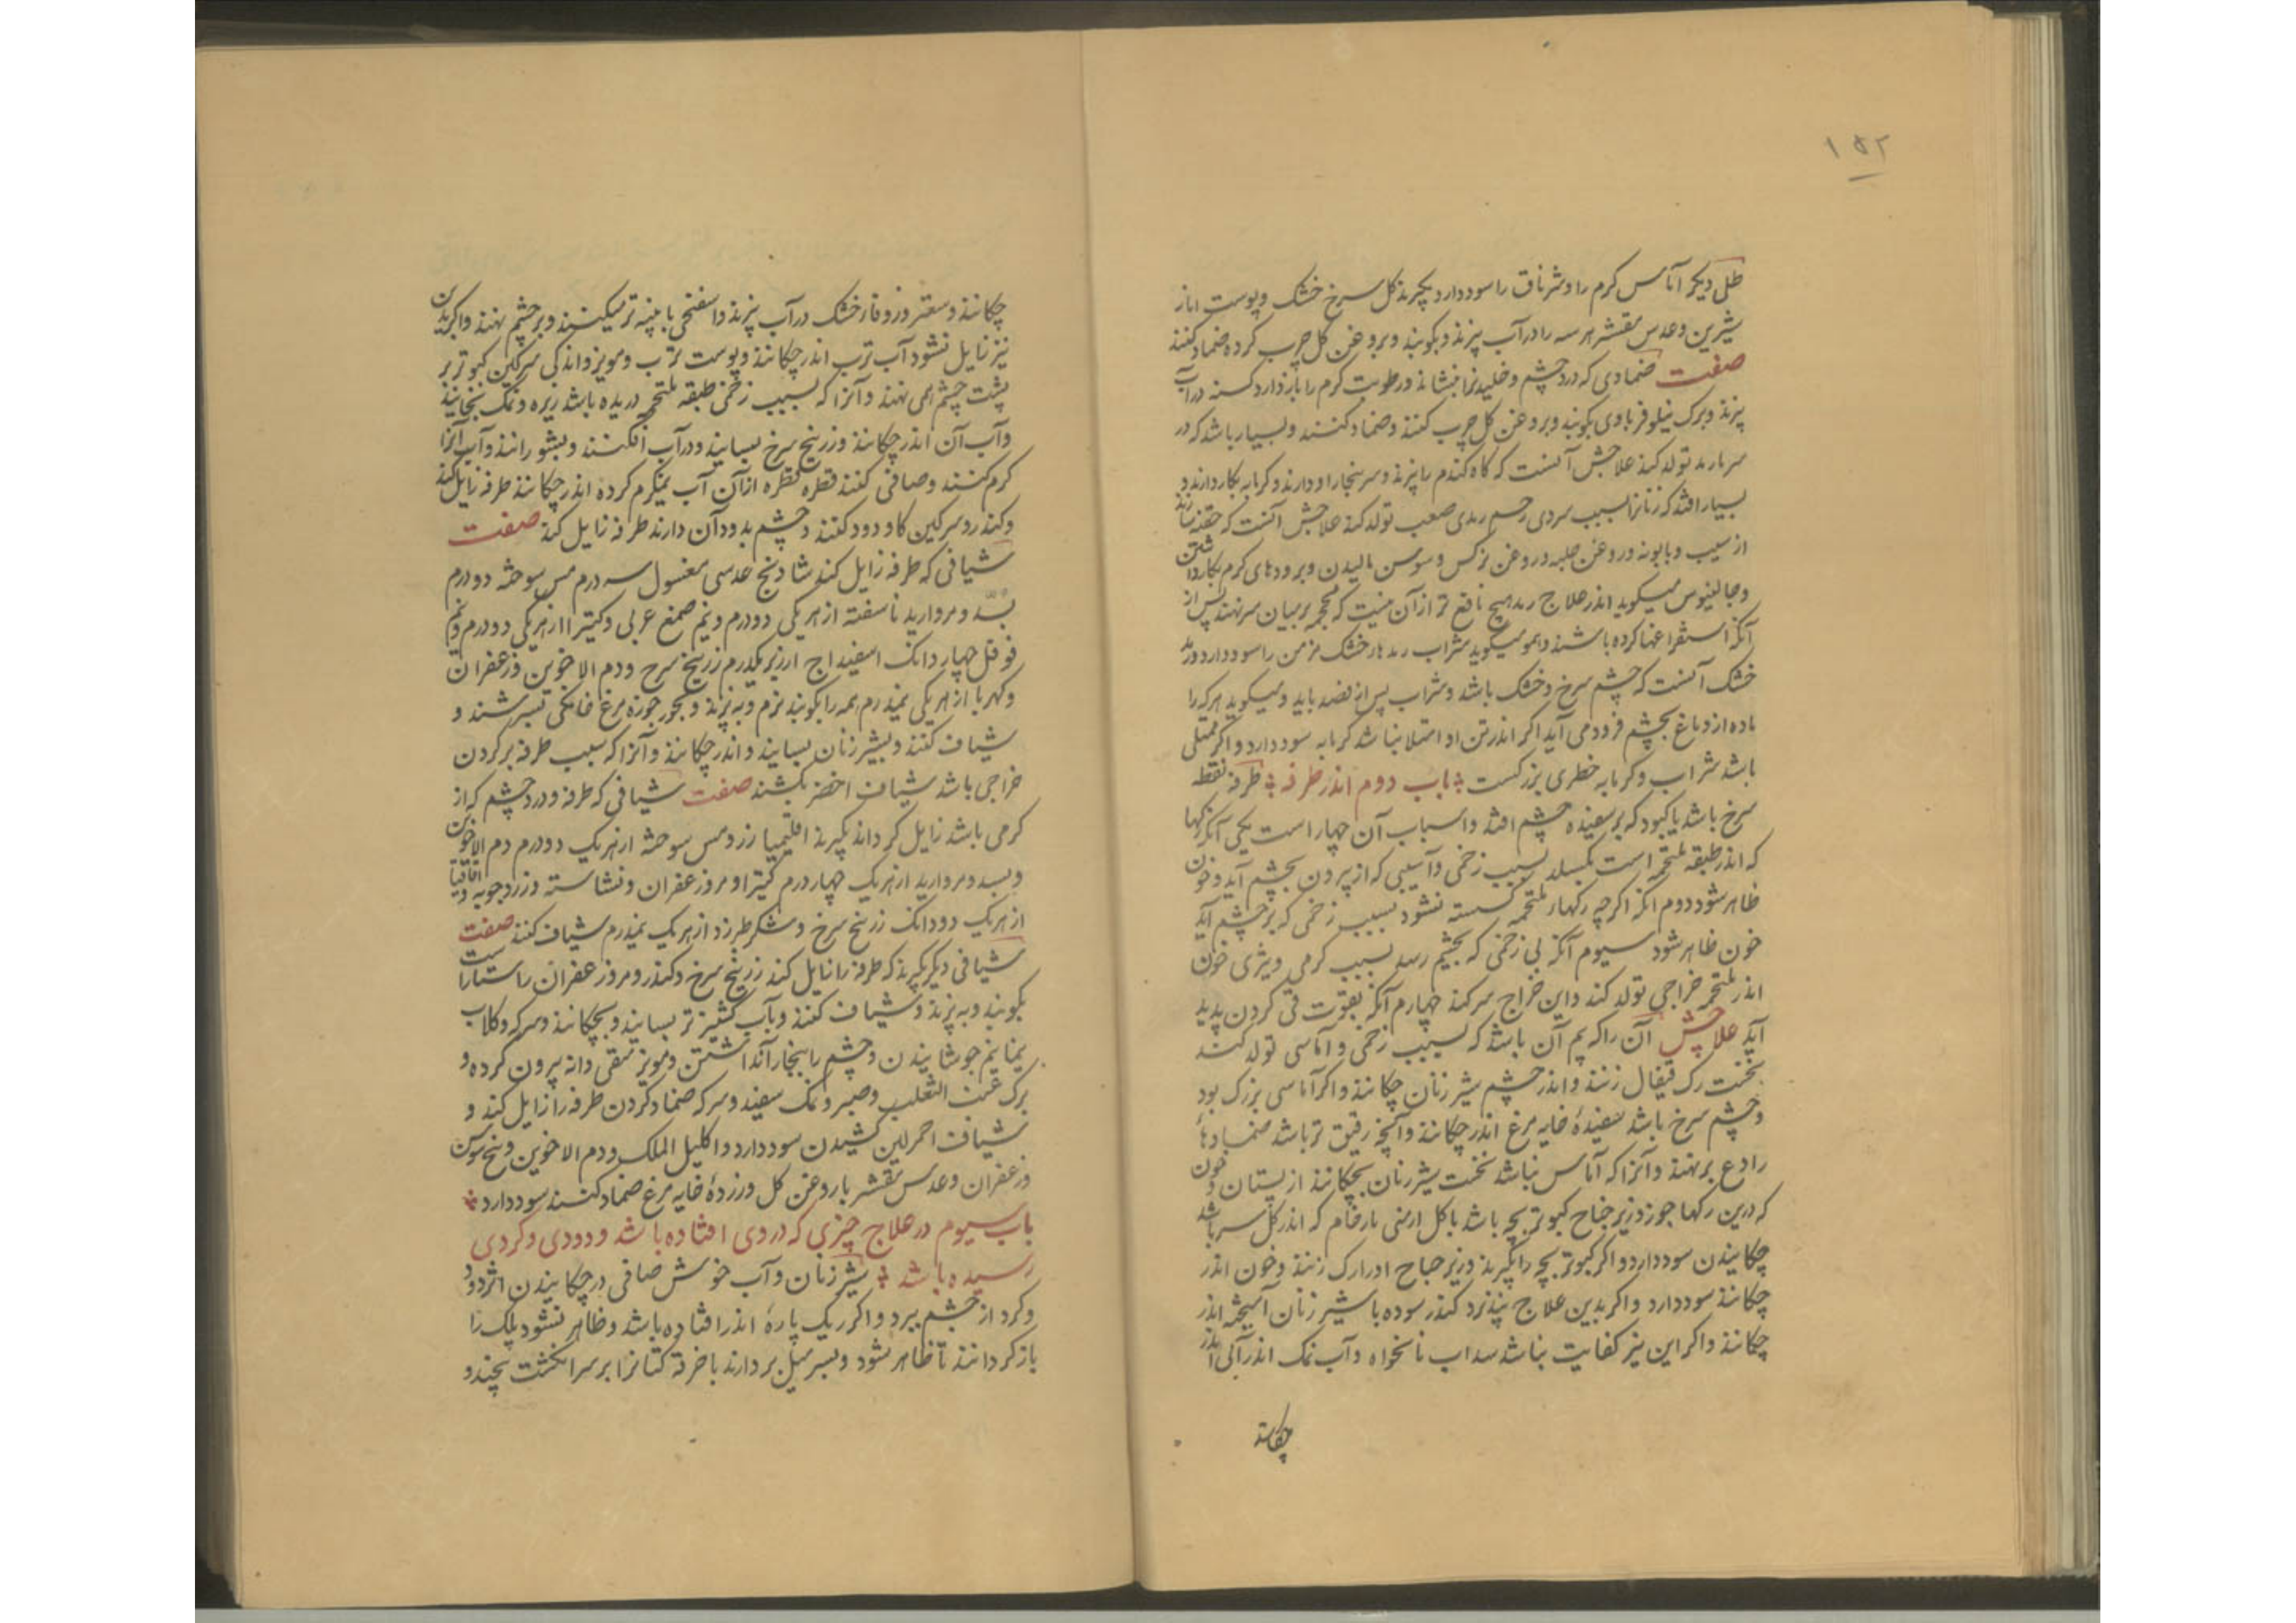 ۱۵۲
طلی دیگر آماس گرم را و شرناق را سود دارد بگیرند گل سرخ خشک و پوست انار
شیرین و عدس مقشر هر سه را در آب بپزند و بکوبند و بروغن گل چرب کرده ضماد کنند
صفت ضمادی که درد چشم و خلیدن را بنشاند و رطوبت گرم را باز دارد کسنه در آب
بپزند و برک نیلوفر با وی بکوبند و بروغن گل چرب کنند و ضماد کنند و بسیار باشد که در
سرما رمد تولد کند علاجش آنست که کاه گندم را بپزند و سر ببخار او دارند و گرمابه بکار دارند و
بسیار افتد که زنانرا بسبب سردی رحم رمدی صعب تولد کند علاجش آنست که حقنه سازند
از سیب و بابونه و روغن حلبه و روغن نرگس و سوسن مالیدن و برودهای گرم بکار داشتن
و جالینوس میگوید اندر علاج رمد هیچ نافع تر از آن نیست که محجمه بر میان سر نهند پس از
آنکه استفراغها کرده باشند و همو میگوید شراب رمدهای خشک مزمن را سود دارد و رمد
خشک آنست که چشم سرخ و خشک باشد و شراب پس از فصد باید و میگوید هر که را
ماده از دماغ بچشم فرود می آید اگر اندر تن او امتلا نباشد گرمابه سود دارد و اگر ممتلی
باشد شراب و گرمابه خطری بزرگست باب دوم اندر طرفه طرفه نقطه
سرخ باشد یا کبود که بر سفیده چشم افتد و اسباب آن چهار است یکی آنکه رگها
که اندر طبقه ملتحمه است بگسلد بسبب زخمی و آسیبی که از بیرون بچشم آید و خون
ظاهر شود دوم آنکه اگر چه رگهای ملتحمه گسسته نشود بسبب زخمی که بر چشم آید
خون ظاهر شود سیوم آنکه بی زخمی که بچشم رسد بسبب گرمی و تیزی خون
اندر ملتحمه خراجی تولد کند و این خراج سر کند چهارم آنکه بقوت قی کردن پدید
آید علاجش آن را که بیم آن باشد که بسبب زخمی و آماسی تولد کند
نخست رگ قیفال زنند و اندر چشم شیر زنان چکانند و اگر آماسی بزرگ بود
و چشم سرخ باشد سفیدهٔ خایه مرغ اندر چکانند و آنچه رقیق تر باشد ضمادهاء
رادع برنهند و آنرا که آماس نباشد نخست شیر زنان بچکانند از پستان و خون
که در بن رگها جوزه زیر جناح کبوتر بچه باشد با گل ارمنی یا رخام که اندر گل سر باشد
چکانیدن سود دارد و اگر کبوتر بچه را بگیرند و زیر جناح او را رگ زنند و خون اندر
چکانند سود دارد و اگر بدین علاج نپذیرد کندر سوده با شیر زنان آمیخته اندر
چکانند و اگر این نیز کفایت نباشد سداب نانخواه و آب نمک اندر آبی اندر
چکانند
چکانند و سعتر و زوفاء خشک در آب بپزند و اسفنجی با پنبه تر میکنند و بر چشم نهند و اگر بدین
نیز زایل نشود آب ترب اندر چکانند و پوست ترب و مویز و اندکی سرگین کبوتر بر
پشت چشم همی نهند و آنرا که بسبب زخمی طبقه ملتحمه دریده باشد زیره و نمک بخایند
و آب آن اندر چکانند و زرنیخ سرخ بسایند و در آب افکنند و بشورانند و آب آنرا
گرم کنند و صافی کنند قطره قطره از آن آب نیمگرم کرده اندر چکانند طرفه زایل کند
و کندر و سرگین گاو دود کنند و چشم بدود آن دارند طرفه زایل کند صفت
شیافی که طرفه زایل کند شادنج عدسی مغسول سه درم مس سوخته دو درم
بسد و مروارید ناسفته از هر یکی دو درم و نیم صمغ عربی و کتیرا از هر یکی دو درم و نیم
فوفل چهار دانک اسفیداج ارزیز یکدرم زرنیخ سرخ و دم الاخوین و زعفران
و کهربا از هر یکی نیمدرم همه را بکوبند نرم و به پزند و بخون جوزه مرغ خانگی بسرشند و
شیاف کنند و بشیر زنان بسایند و اندر چکانند و آنرا که سبب طرفه بر کردن
خراجی باشد شیاف اخضر بکشند صفت شیافی که طرفه و درد چشم که از
گرمی باشد زایل گرداند بگیرند اقلیمیا زر و مس سوخته از هر یک دو درم دم الاخوین
و بسد و مروارید از هر یک چهار درم کتیرا و مر و زعفران و نشاسته و زردچوبه و اقاقیا
از هر یک دو دانک زرنیخ سرخ و شکر طبرزد از هر یک نیمدرم شیاف کنند صفت
شیافی دیگر بگیرند که طرفه را زایل کند زرنیخ سرخ و کندر و مر و زعفران راستا راست
بکوبند و به پزند و شیاف کنند و بآب گشنیز تر بسایند و بچکانند و سرکه و گلاب
نیمانیم جوشانیدن و چشم را ببخار آن داشتن و مویز منقی دانه بیرون کرده و
برگ عنب الثعلب و صبر و نمک سفید و سرکه ضماد کردن طرفه را زایل کند و
شیاف احمر لین کشیدن سود دارد و اکلیل الملک و دم الاخوین و بیخ سوسن
و زعفران و عدس مقشر با روغن گل و زردهٔ خایه مرغ ضماد کنند سود دارد
باب سیوم در علاج چیزی که در وی افتاده باشد و دودی و گردی
رسیده باشد شیر زنان و آب خوش صافی در چکانیدن اثر دود
و گرد از چشم ببرد و اگر ریک پارهٔ اندر افتاده باشد و ظاهر نشود پلک را
باز گردانند تا ظاهر شود و بسر میل بردارند با خرقهٔ کتانرا بر سر انگشت پیچند و